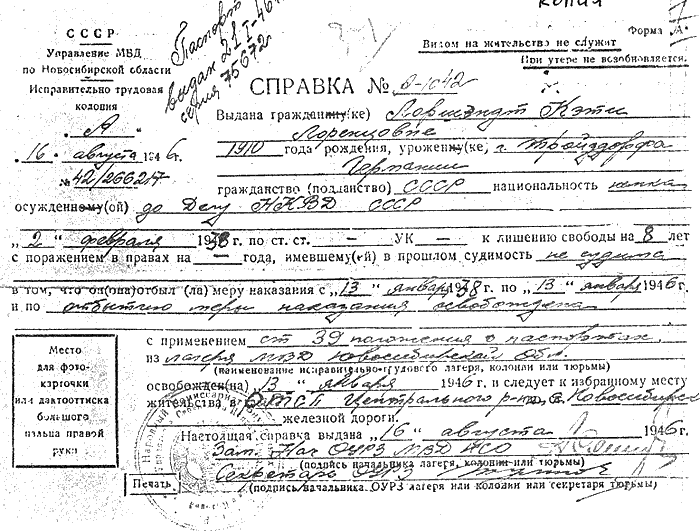 КОПИЯ
СССР
Управление МВД
по Новосибирской области
Исправительно трудовая
колония
"А"
16 августа 1946г.
№42/266217
Паспорт
выдан 21 I-46
серия 75672
Форма „А"
Видом на жительство не служит
При утере не возобновляется.
СПРАВКА № 0-1042
Выдана гражданину(ке) Лоршейдт Кэти
Лоренцовне
1910 года рождения, уроженки(ке) г. Тройздорфа
Германии
гражданство (подданство) СССР национальность немка
осужденному(ой) по Делу НКВД СССР
„2" февраля 1938г. по ст. ст. — УК — к лишению свободы на 8 лет
с поражением в правах на — года, имевшему(ей) в прошлом судимость не судима
в том, что он(она) отбыл (ла) меру наказания с „13" января 1938г. по „13" января 1946г.
и по отбытию меры наказания освобождена
с применением ст 39 положения о паспортах
из лагеря МВД Новосибирской Обл.
(наименование исправительно-трудового лагеря, колонии или тюрьмы)
освобожден(на) 13 " января 1946г. и следует к избранному месту
жительства в Центрального р-на, г. Новосибирск
железной дороги.
Настоящая справка выдана „16" августа 1946г.
Зам. Нач ОУРЗ МВД НСО
(подпись начальника лагеря, колонии или тюрьмы)
Секретарь ОУРЗ
(подпись начальника ОУРЗ лагеря или колонии или секретаря тюрьмы)
Место
для фото-
карточки
или дактооттиска
большого
пальца правой
руки
Печать